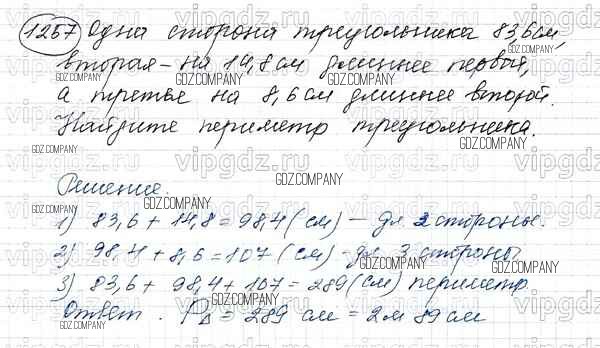 1257 Одна сторона треугольника 83,6 см,
вторая – на 14,8 см длиннее первой,
а третья на 8,6 см длиннее второй.
Найдите периметр треугольника.
Решение.
1) 83,6 + 14,8 = 98,4 (см) – дл 2 стороны.
2) 98,4 + 8,6 = 107 (см) – дл 3 стороны
3) 83,6 + 98,4 + 107 = 289 (см) периметр
Ответ. P△ = 289 см = 2м 89 см
vipgdz.ru
GDZ.COMPANY